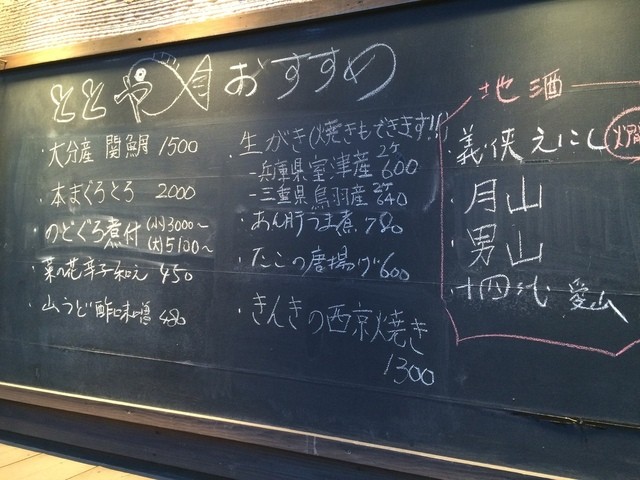 ととや おすすめ
・大分産 関鯛 1500
・本まぐろとろ 2000
・のどぐろ煮付 (小)3000〜
(大)5100〜
・菜の花辛子和え 450
・山うど酢味噌 480
・生がき(焼きもできます!!)
-兵庫県室津産 2ケ 600
-三重県鳥羽産 2ケ 640
・あん肝うま煮 780
・たこの唐揚げ 600
・きんきの西京焼き
1300
地酒
・義侠えにし 燗
・月山
・男山
・十四代 愛山